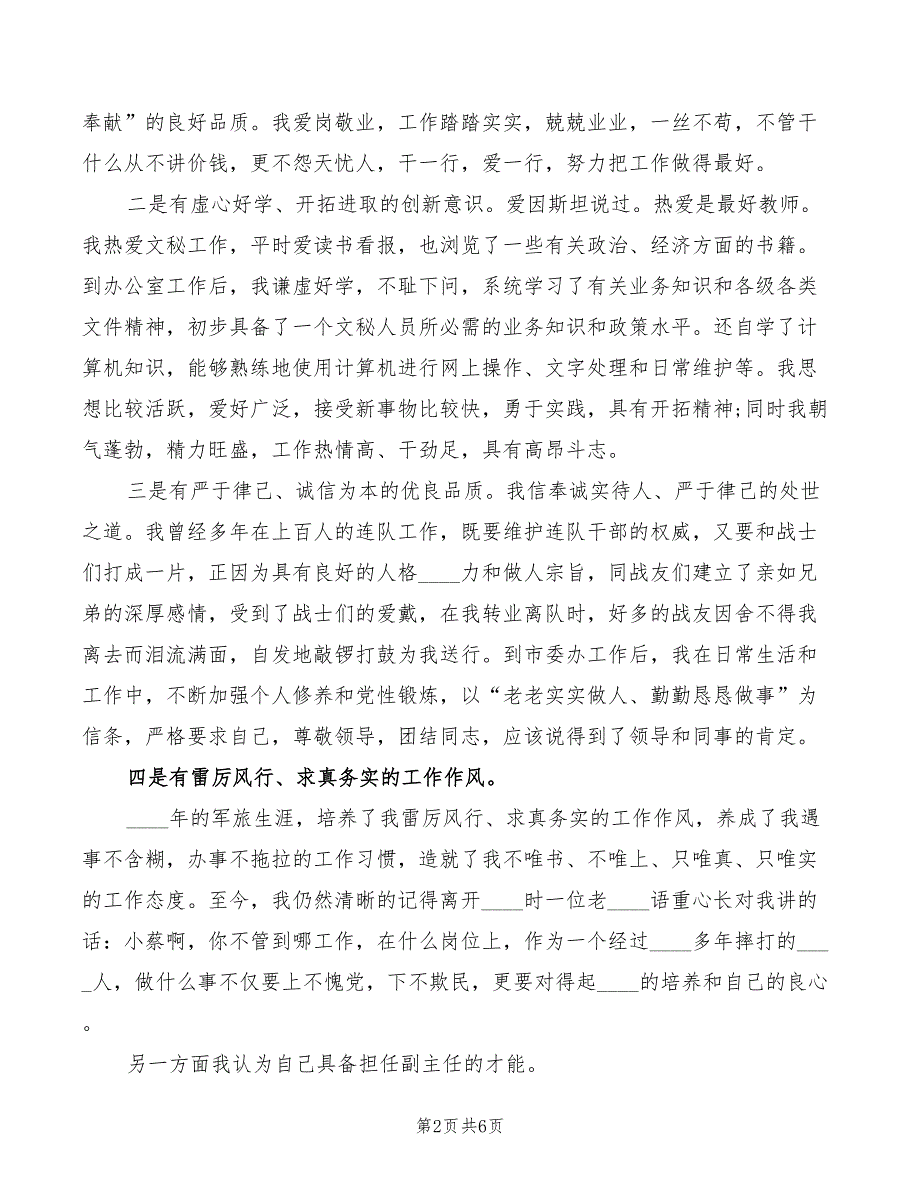 奉献”的良好品质。我爱岗敬业，工作踏踏实实，兢兢业业，一丝不苟，不管干
什么从不讲价钱，更不怨天忧人，干一行，爱一行，努力把工作做得最好。
二是有虚心好学、开拓进取的创新意识。爱因斯坦说过。热爱是最好教师。
我热爱文秘工作，平时爱读书看报，也浏览了一些有关政治、经济方面的书籍。
到办公室工作后，我谦虚好学，不耻下问，系统学习了有关业务知识和各级各类
文件精神，初步具备了一个文秘人员所必需的业务知识和政策水平。还自学了计
算机知识，能够熟练地使用计算机进行网上操作、文字处理和日常维护等。我思
想比较活跃，爱好广泛，接受新事物比较快，勇于实践，具有开拓精神;同时我朝
气蓬勃，精力旺盛，工作热情高、干劲足，具有高昂斗志。
三是有严于律己、诚信为本的优良品质。我信奉诚实待人、严于律己的处世
之道。我曾经多年在上百人的连队工作，既要维护连队干部的权威，又要和战士
们打成一片，正因为具有良好的人格____力和做人宗旨，同战友们建立了亲如兄
弟的深厚感情，受到了战士们的爱戴，在我转业离队时，好多的战友因舍不得我
离去而泪流满面，自发地敲锣打鼓为我送行。到市委办工作后，我在日常生活和
工作中，不断加强个人修养和党性锻炼，以“老老实实做人、勤勤恳恳做事”为
信条，严格要求自己，尊敬领导，团结同志，应该说得到了领导和同事的肯定。
四是有雷厉风行、求真务实的工作作风。
____年的军旅生涯，培养了我雷厉风行、求真务实的工作作风，养成了我遇
事不含糊，办事不拖拉的工作习惯，造就了我不唯书、不唯上、只唯真、只唯实
的工作态度。至今，我仍然清晰的记得离开____时一位老____语重心长对我讲的
话：小蔡啊，你不管到哪工作，在什么岗位上，作为一个经过____多年摔打的___
_人，做什么事不仅要上不愧党，下不欺民，更要对得起____的培养和自己的良心
。
另一方面我认为自己具备担任副主任的才能。
第2页 共6页